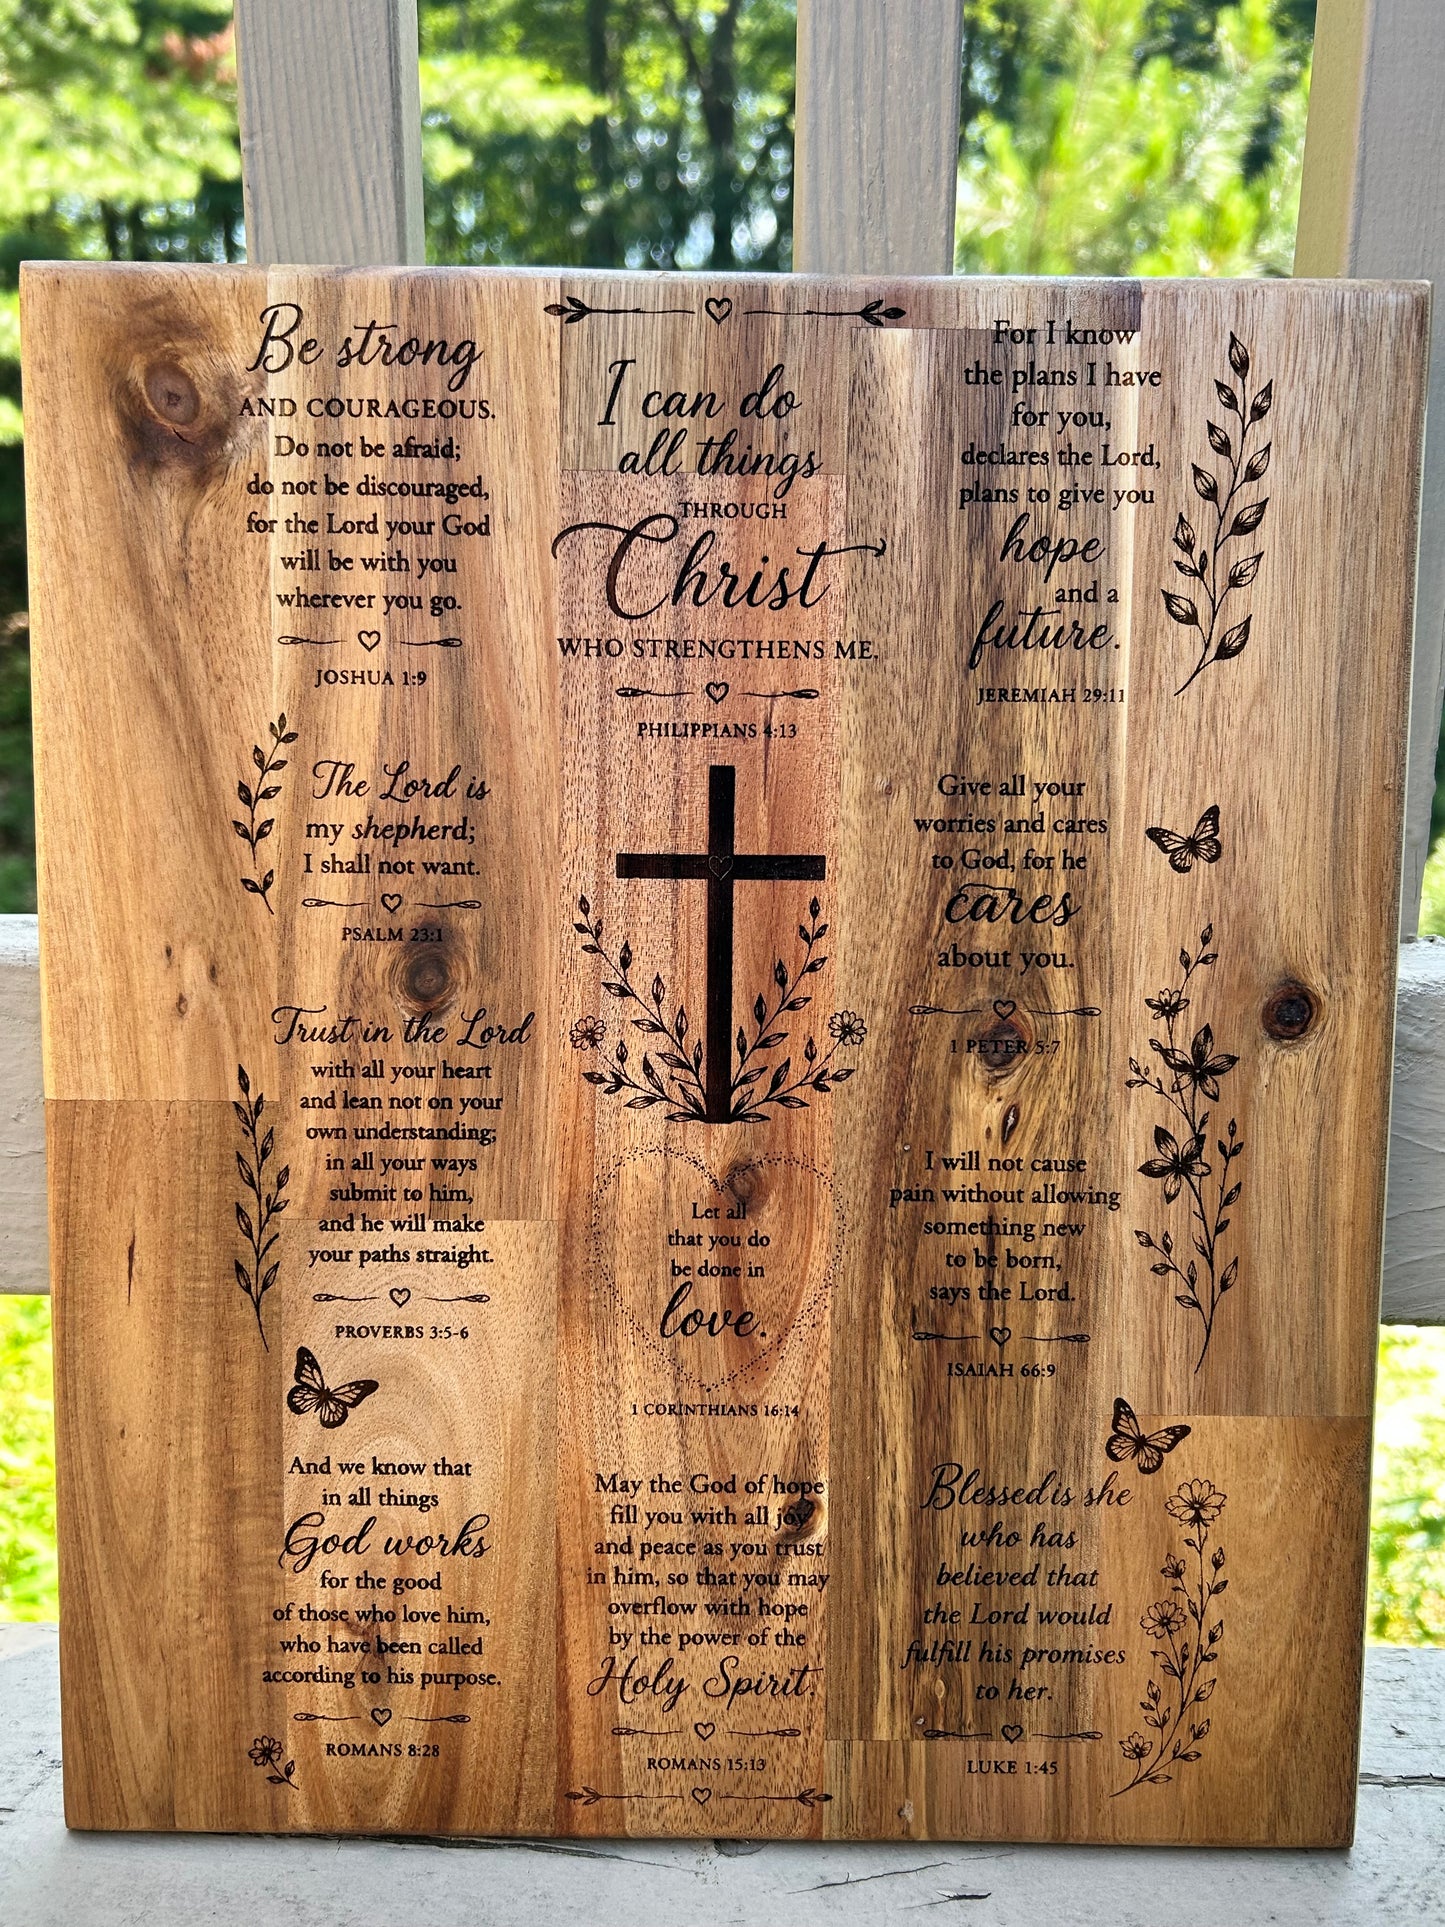 Be strong
AND COURAGEOUS.
Do not be afraid;
do not be discouraged,
for the Lord your God
will be with you
wherever you go.
JOSHUA 1:9
The Lord is
my shepherd;
I shall not want.
PSALM 23:1
Trust in the Lord
with all your heart
and lean not on your
own understanding;
in all your ways
submit to him,
and he will make
your paths straight.
PROVERBS 3:5-6
And we know that
in all things
God works
for the good
of those who love him,
who have been called
according to his purpose.
ROMANS 8:28
I can do
all things
THROUGH
Christ
WHO STRENGTHENS ME.
PHILIPPIANS 4:13
Let all
that you do
be done in
love.
1 CORINTHIANS 16:14
May the God of hope
fill you with all joy
and peace as you trust
in him, so that you may
overflow with hope
by the power of the
Holy Spirit.
ROMANS 15:13
For I know
the plans I have
for you,
declares the Lord,
plans to give you
hope
and a
future.
JEREMIAH 29:11
Give all your
worries and cares
to God, for he
cares
about you.
1 PETER 5:7
I will not cause
pain without allowing
something new
to be born,
says the Lord.
ISAIAH 66:9
Blessed is she
who has
believed that
the Lord would
fulfill his promises
to her.
LUKE 1:45